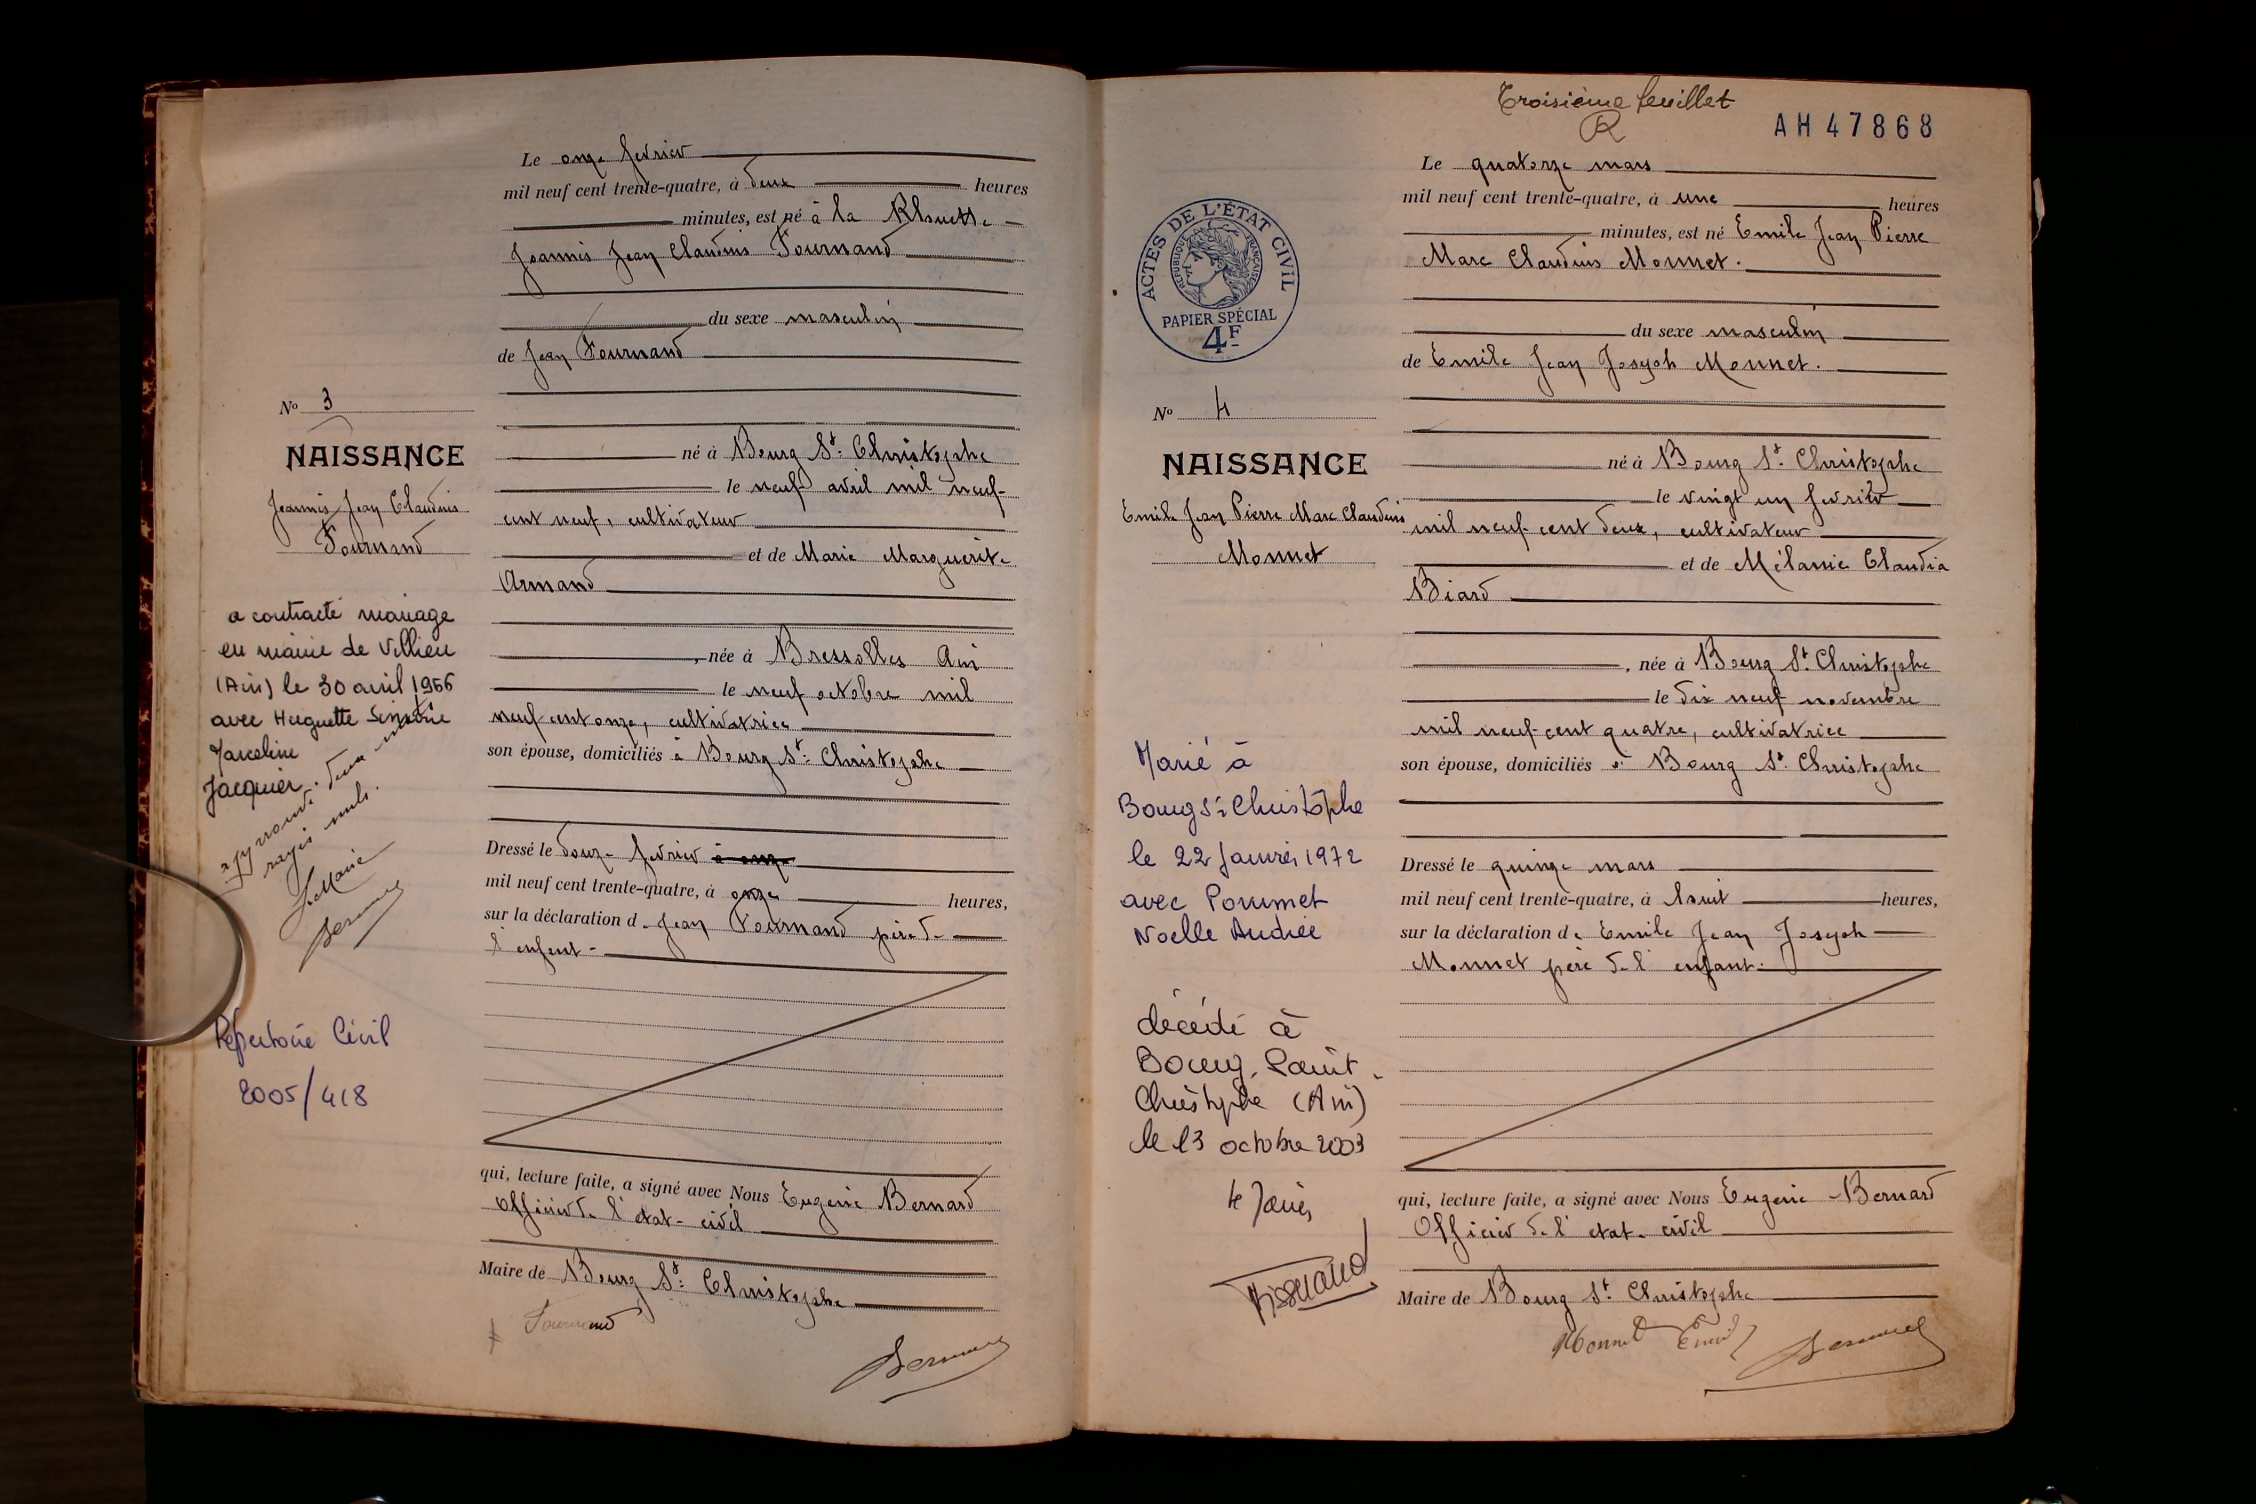 Le onze fevrier
mil neuf cent trente-quatre, à deux heures
minutes, est né à la
Joannis Jean Claudius Fournand
du sexe masculin
de Jean Fournand
né à Bourg St Christophe
le neuf avril mil neuf
cent neuf, cultivateur
et de Marie Marguerite
Armand
, née à Bressolles Ain
le neuf octobre mil
neuf cent onze, cultivatrice
son épouse, domiciliés à Bourg St Christophe
Dressé le douze fevrier à onze
mil neuf cent trente-quatre, à onze heures,
sur la déclaration de Jean Fournand père de
l'enfent
qui, lecture faite, a signé avec Nous Eugenie Bernard
officier de l'etat-civil
Maire de Bourg St Christophe
Fournand
Bernard
No 3
NAISSANCE
Joannis Jean Claudius
Fournand
a contracté mariage
en mairie de Villieu
(Ain) le 30 avril 1956
avec Huguette Simone
Marceline
Jacquier.
approuvé deux mots
rayés nuls.
Le Maire
Bernard
Répertoire Civil
2005/418
Troisième feuillet
R
AH47868
ACTES DE L'ÉTAT CIVIL
RÉPUBLIQUE FRANÇAISE
PAPIER SPÉCIAL
4F
Le quatorze mars
mil neuf cent trente-quatre, à une heures
minutes, est né Emile Jean Pierre
Marc Claudius Monnet.
du sexe masculin
de Emile Jean Joseph Monnet.
né à Bourg St Christophe
le vingt un fevrier
mil neuf cent deux, cultivateur
et de Mélanie Claudia
Biard
, née à Bourg St Christophe
le dix neuf novembre
mil neuf-cent quatre, cultivatrice
son épouse, domiciliés à Bourg St Christophe
Dressé le quinze mars
mil neuf cent trente-quatre, à huit heures,
sur la déclaration de Emile Jean Joseph
Monnet père de l'enfant.
qui, lecture faite, a signé avec Nous Eugenie Bernard
Officier de l'etat-civil
Maire de Bourg St Christophe
Monnet Emile
Bernard
No 4
NAISSANCE
Emile Jean Pierre Marc Claudius
Monnet
Marié à
Bourg St Christophe
le 22 Janvier 1972
avec Pommet
Noelle Andrée
décédé à
Bourg-Saint-
Christophe (Ain)
le 13 octobre 2003
le Maire,